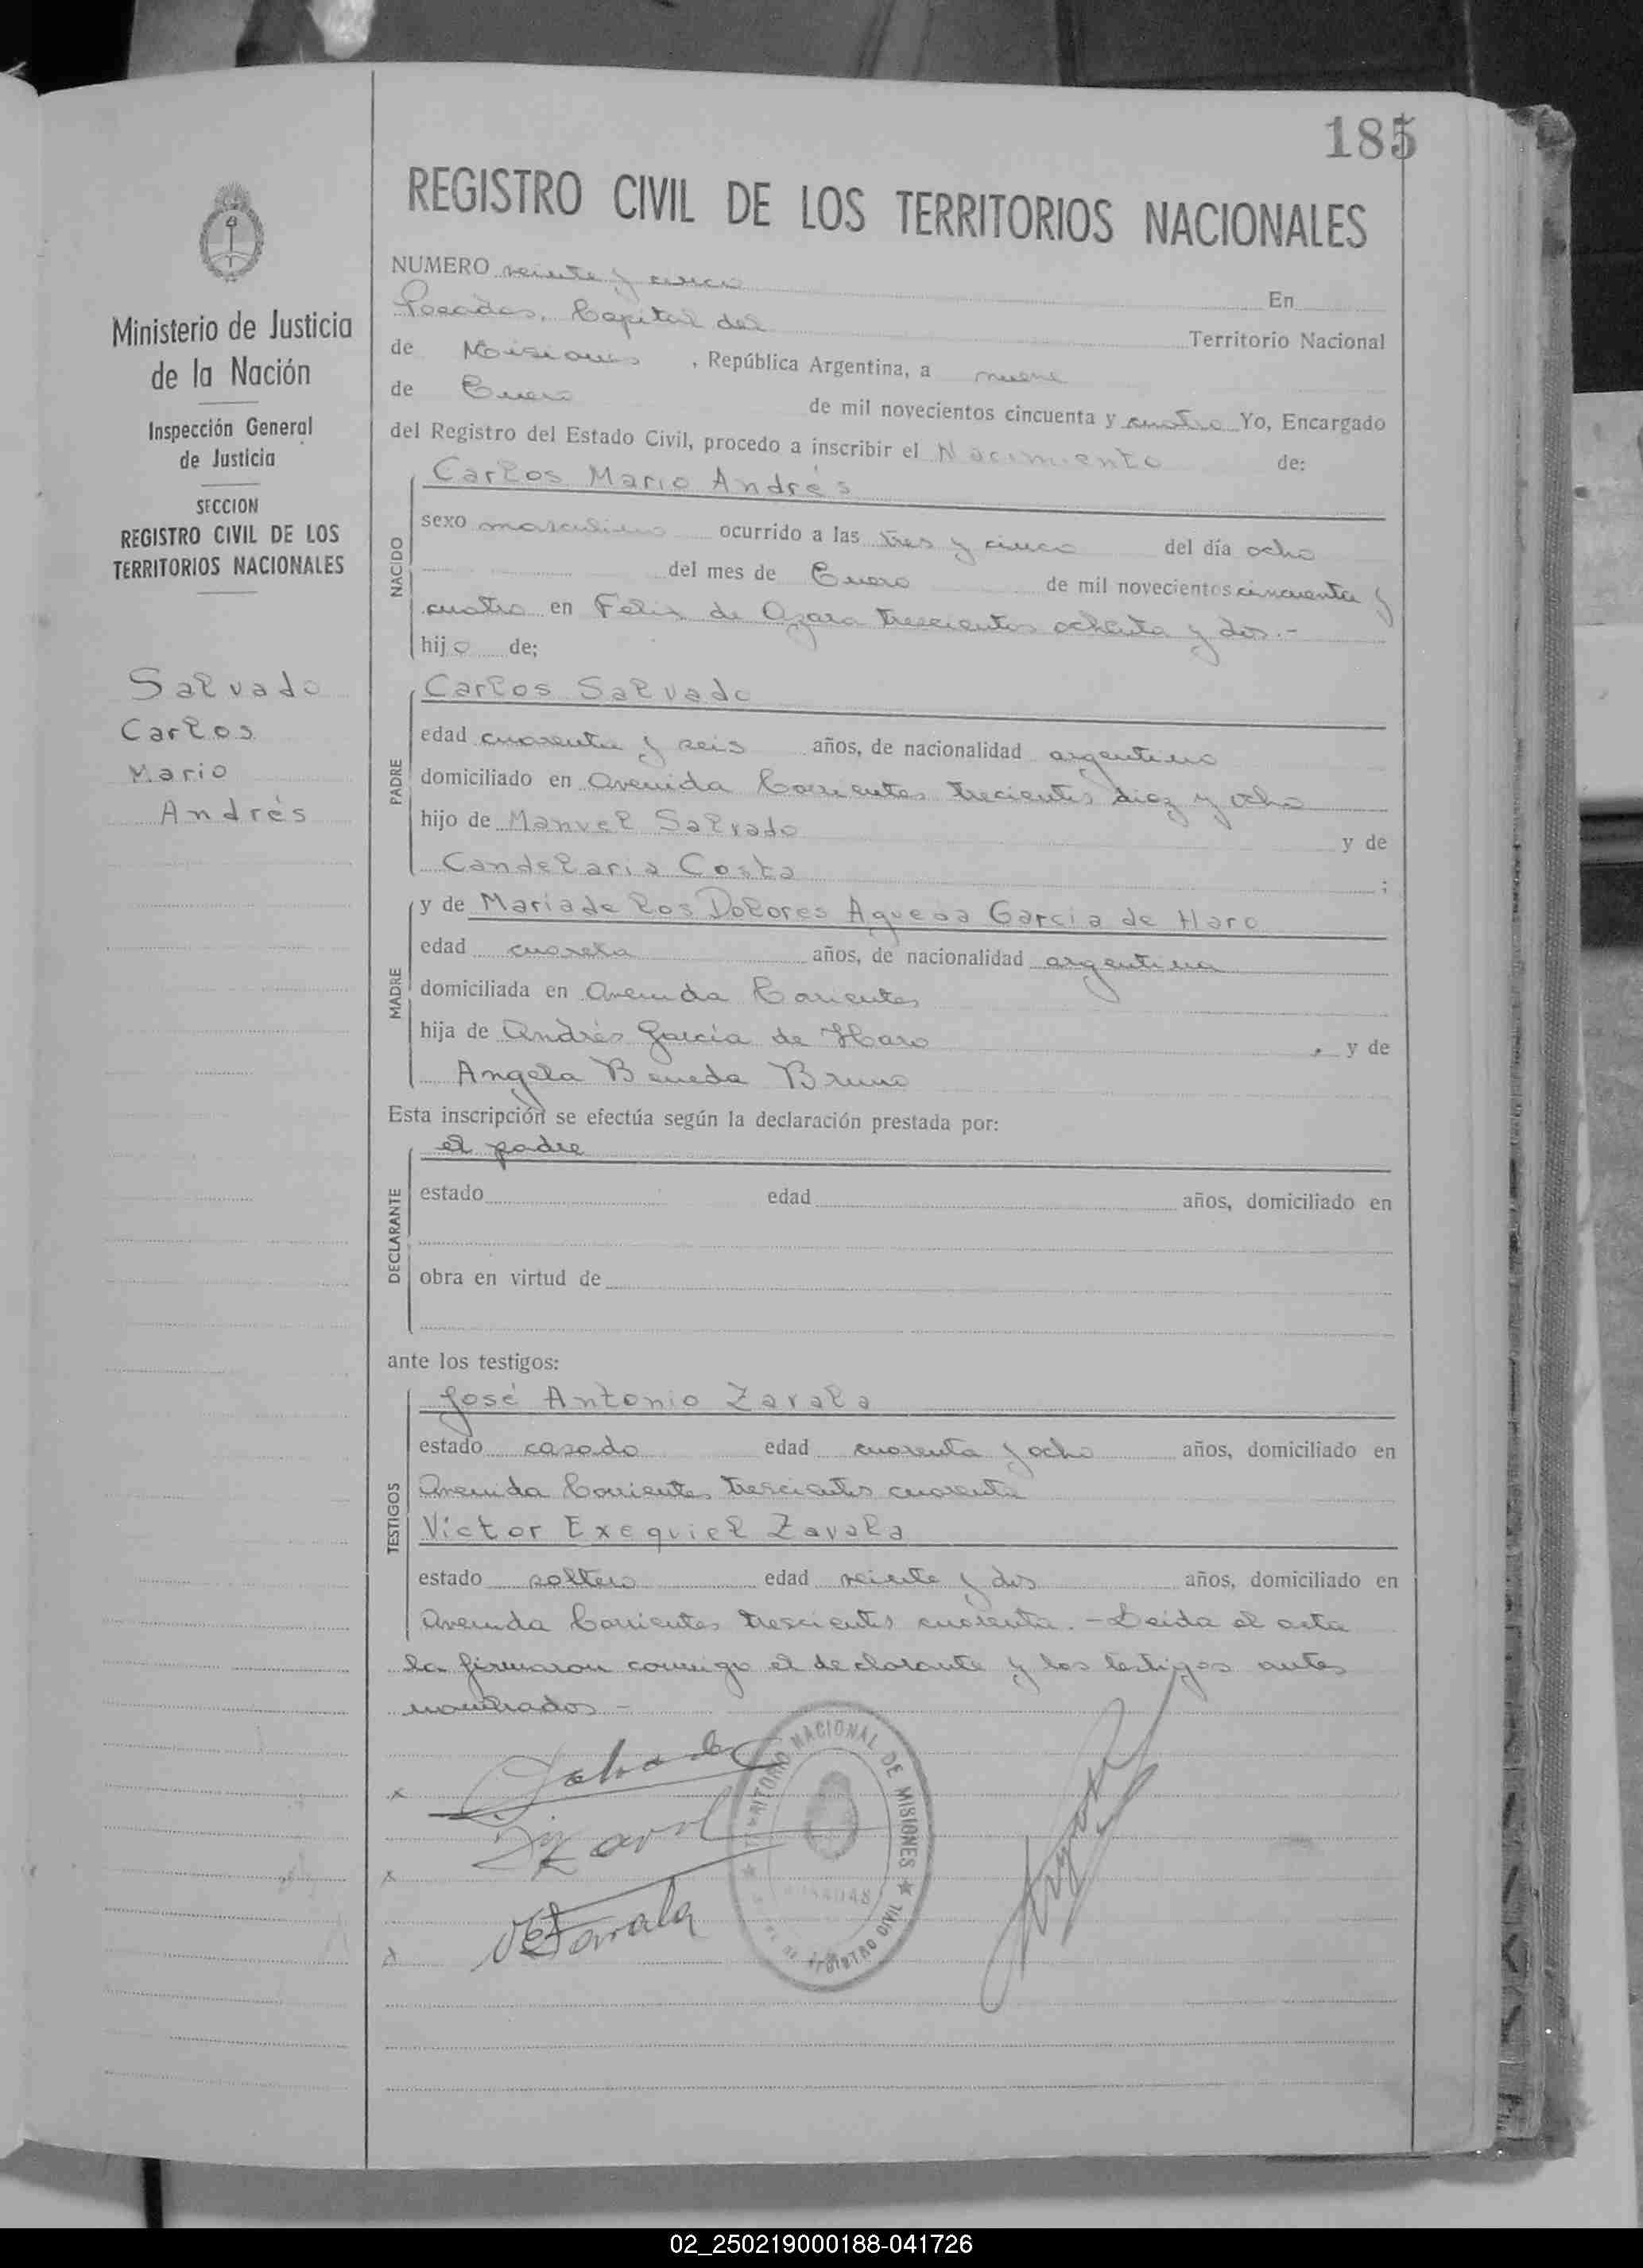 185
REGISTRO CIVIL DE LOS TERRITORIOS NACIONALES
Ministerio de Justicia
de la Nación
Inspección General
de Justicia
SECCION
REGISTRO CIVIL DE LOS
TERRITORIOS NACIONALES
Salvado
Carlos
Mario
Andrés
NUMERO veinte y cinco En
Posadas, Capital del Territorio Nacional
de Misiones , República Argentina, a nueve
de Enero de mil novecientos cincuenta y cuatro Yo, Encargado
del Registro del Estado Civil, procedo a inscribir el Nacimiento de:
NACIDO
Carlos Mario Andrés
sexo masculino ocurrido a las tres y cinco del día ocho
del mes de Enero de mil novecientos cincuenta y
cuatro en Felix de Azara trescientos ochenta y dos.-
hijo de;
PADRE
Carlos Salvado
edad cuarenta y seis años, de nacionalidad argentino
domiciliado en Avenida Corrientes trecientos diez y ocho
hijo de Manuel Salvado y de
Candelaria Costa ;
MADRE
y de Maria de los Dolores Agueda Garcia de Haro
edad años, de nacionalidad argentina
domiciliada en Avenida Corrientes
hija de Andrés García de Haro , y de
Angela Bruno
Esta inscripción se efectúa según la declaración prestada por:
el padre
DECLARANTE
estado edad años, domiciliado en
obra en virtud de
ante los testigos:
TESTIGOS
José Antonio Zavala
estado casado edad cuarenta y ocho años, domiciliado en
Avenida Corrientes trescientos cuarenta
Víctor Exequiel Zavala
estado soltero edad veinte y dos años, domiciliado en
Avenida Corrientes trescientos cuarenta.-Leida el acta
la firmaron conmigo el declarante y los testigos antes
nombrados-
Salvado
VEZavala
TERRITORIO NACIONAL DE MISIONES
REGISTRO CIVIL
02_250219000188-041726